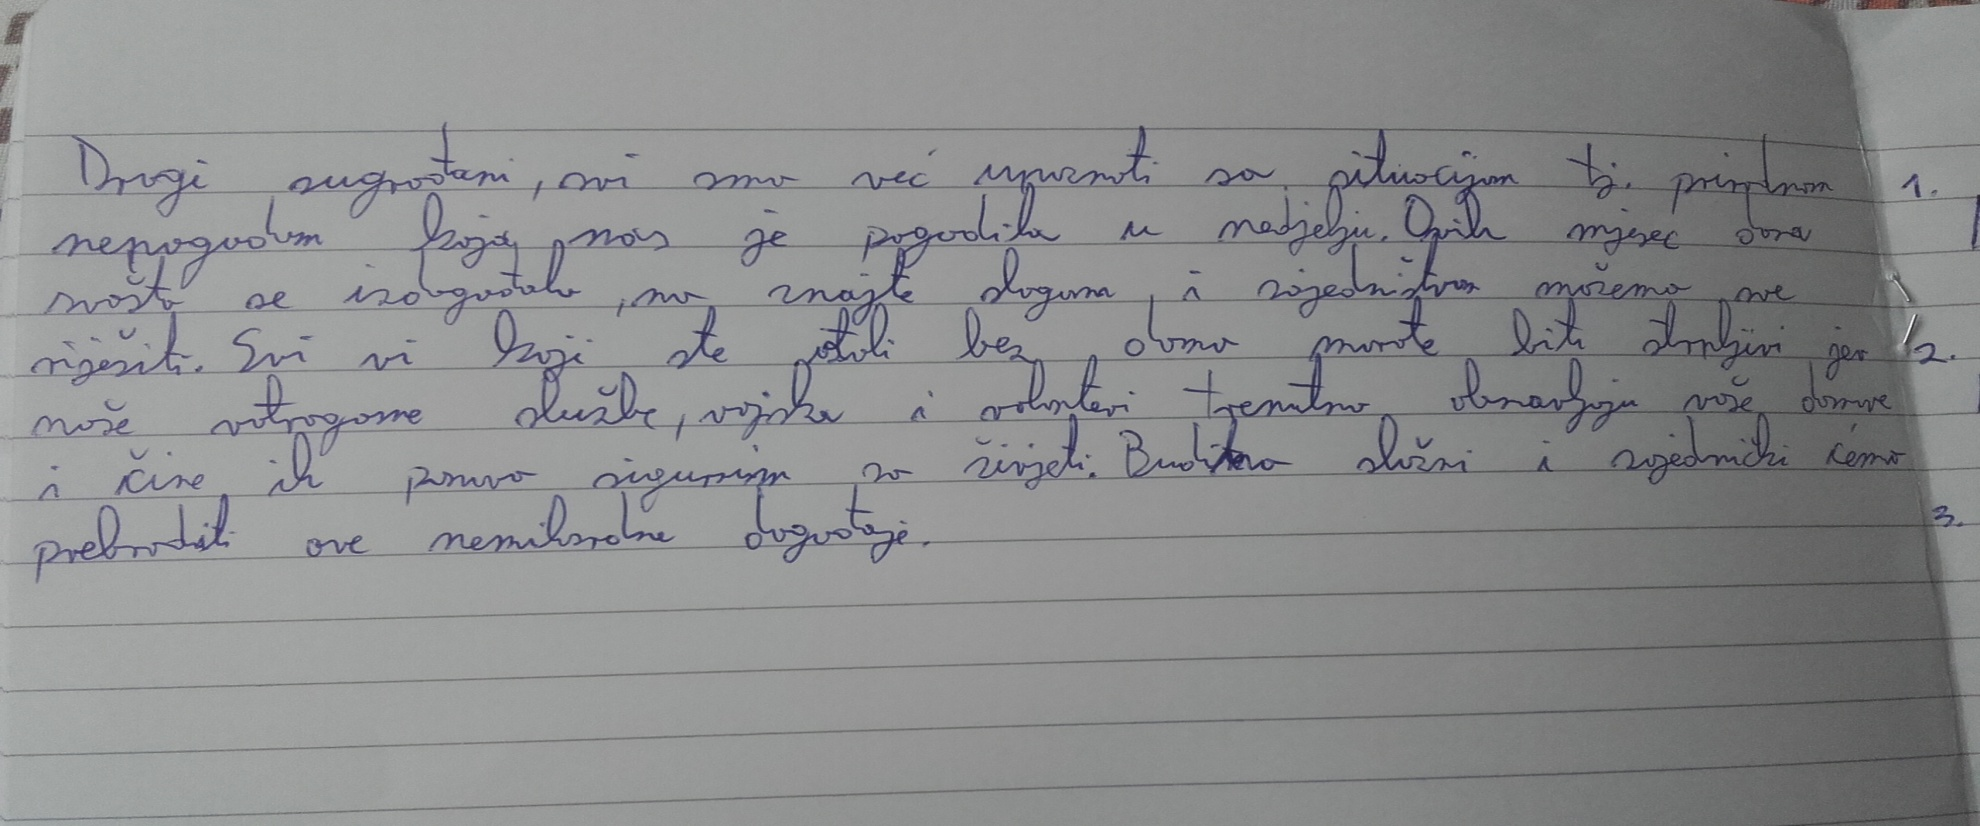 Dragi sugrađani, svi smo već upoznati sa situacijom tj. prirodnom 1.
nepogodom koja nas je pogodila u nedjelju. Ovih mjesec dana
svašta se izdogađalo, no znajte slogom i zajedništvom možemo sve
riješiti. Svi vi koji ste ostali bez doma morate biti strpljivi jer 2.
naše vatrogasne službe, vojska i volonteri trenutno obnavljaju vaše domove
i čine ih ponovo sigurnim za živjeti. Budite složni i zajednički ćemo
prebroditi ove nemilosrdne događaje. 3.